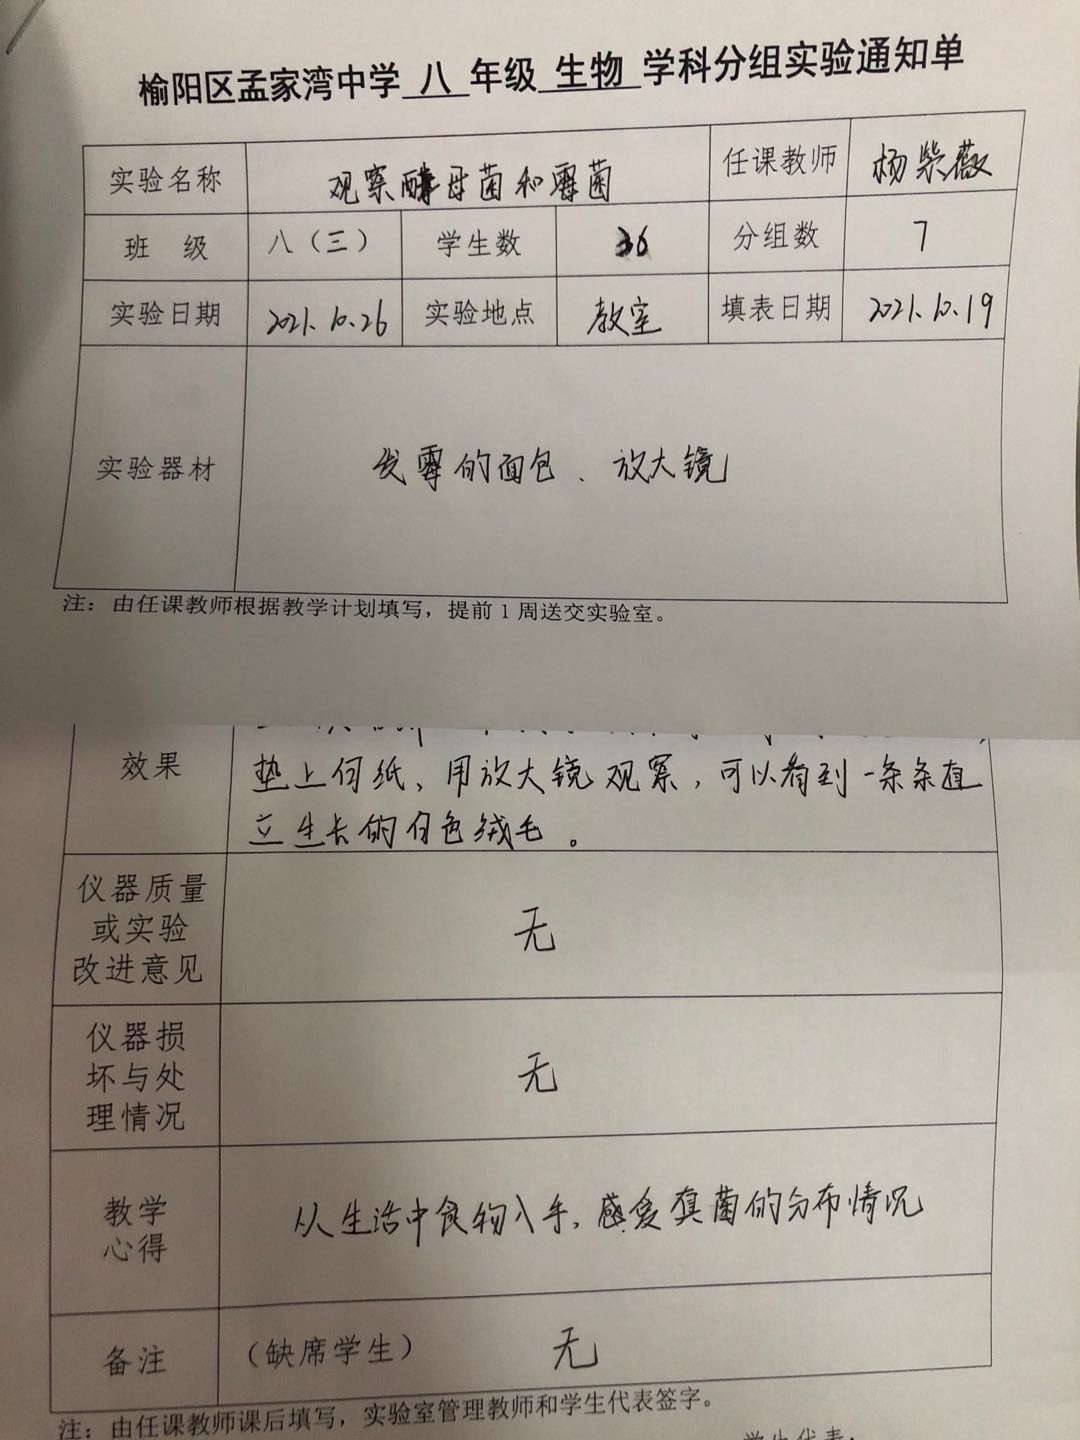 榆阳区孟家湾中学 八 年级 生物 学科分组实验通知单
实验名称 观察酵母菌和霉菌 任课教师 杨紫薇
班 级 八（三） 学生数 36 分组数 7
实验日期 2021.10.26 实验地点 教室 填表日期 2021.10.19
实验器材 发霉的面包、放大镜
注：由任课教师根据教学计划填写，提前1周送交实验室。
效果 垫上白纸、用放大镜观察，可以看到一条条直
立生长的白色绒毛。
仪器质量
或实验
改进意见
无
仪器损
坏与处
理情况
无
教学
心得
从生活中食物入手，感受真菌的分布情况
备注 （缺席学生） 无
注：由任课教师课后填写，实验室管理教师和学生代表签字。
学生代表：